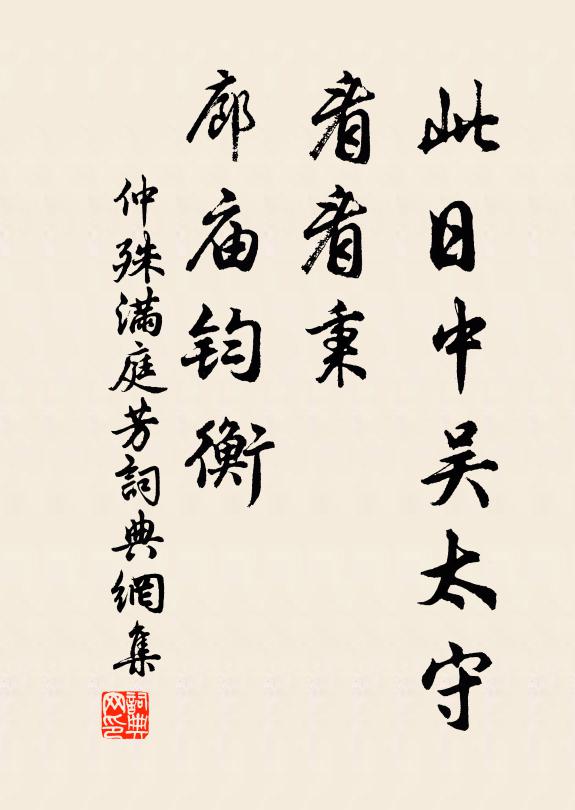 此日中吴太守
看看秉
廊庙钧衡
仲殊满庭芳詞典網集
詞典网印